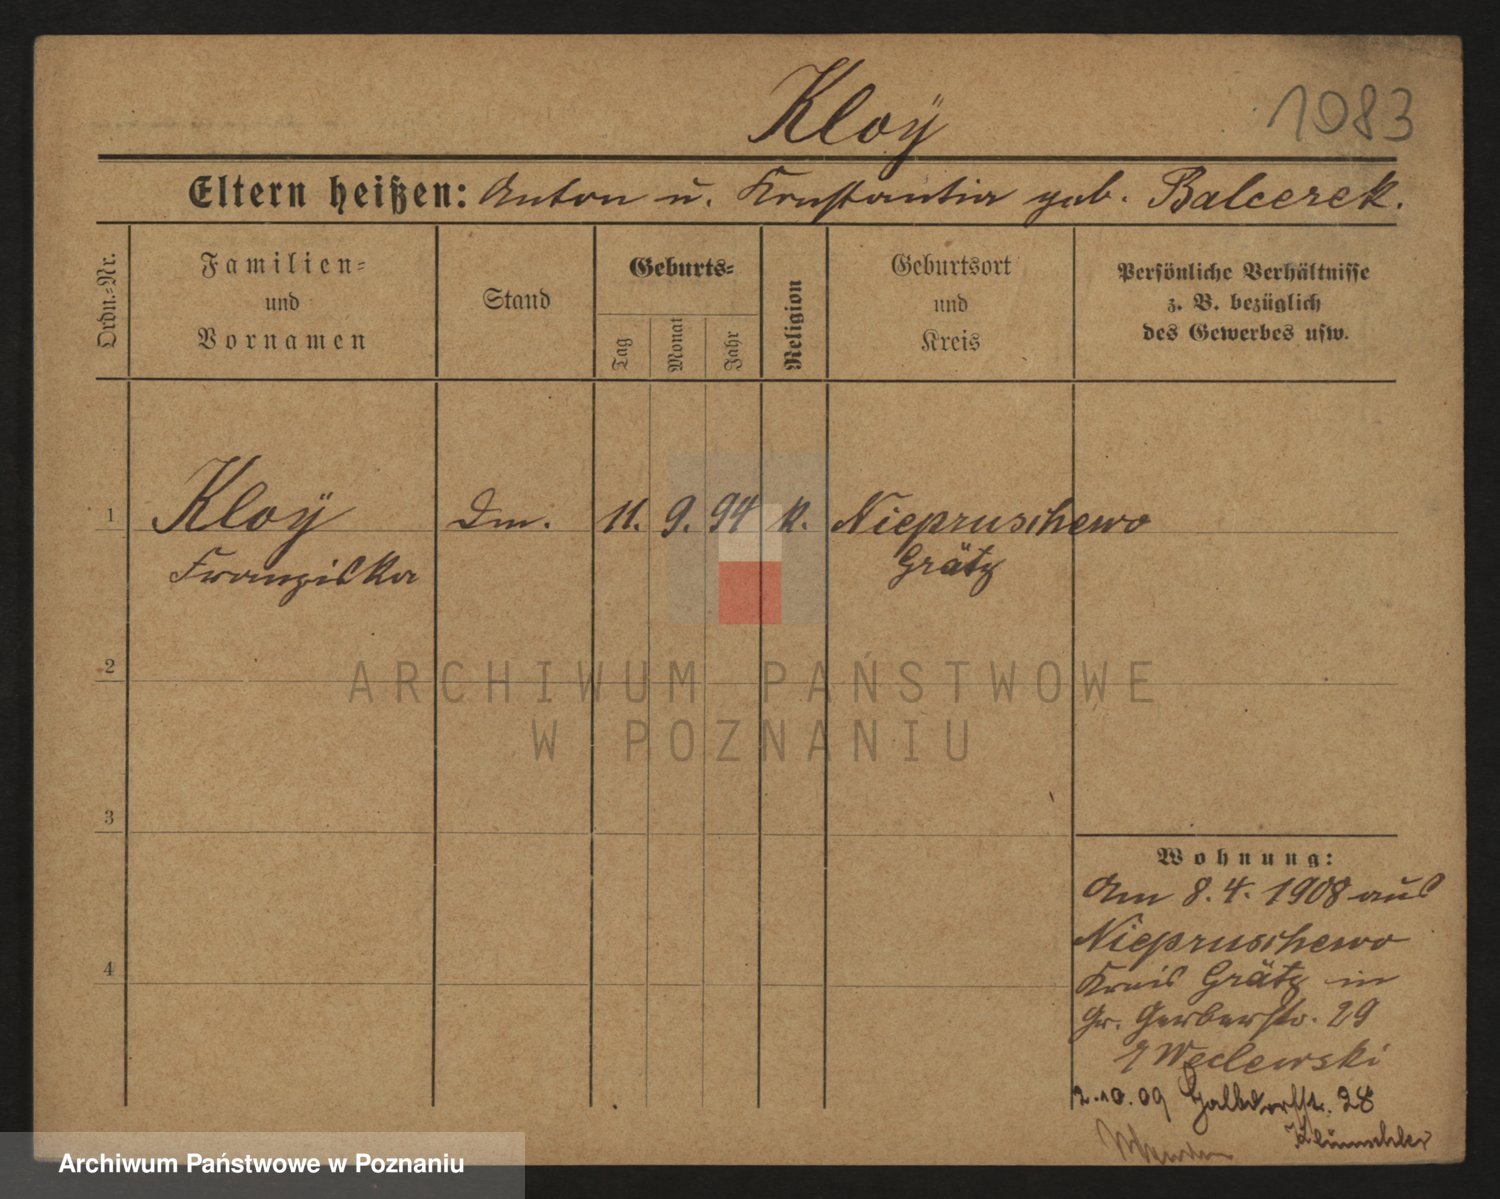 Kloÿ
1083
Eltern heißen: Anton u. Konstantia geb. Balcerek.
Ordn.-Nr.
Familien-
und
Vornamen
Stand
Geburts-
Tag
Monat
Jahr
Religion
Geburtsort
und
Kreis
Persönliche Verhältnisse
z. B. bezüglich
des Gewerbes usw.
1 Kloÿ Dm. 11. 9. 94 k. Niepruschewo
Franziska Grätz
2
ARCHIWUM PAŃSTWOWE
W POZNANIU
3
Wohnung:
Am 8.4.1908 aus
Niepruschewo
4
Kreis Grätz in
Gr. Gerberstr. 29
Weclewski
2.10.09 Halbdorfstr. 28
Archiwum Państwowe w Poznaniu